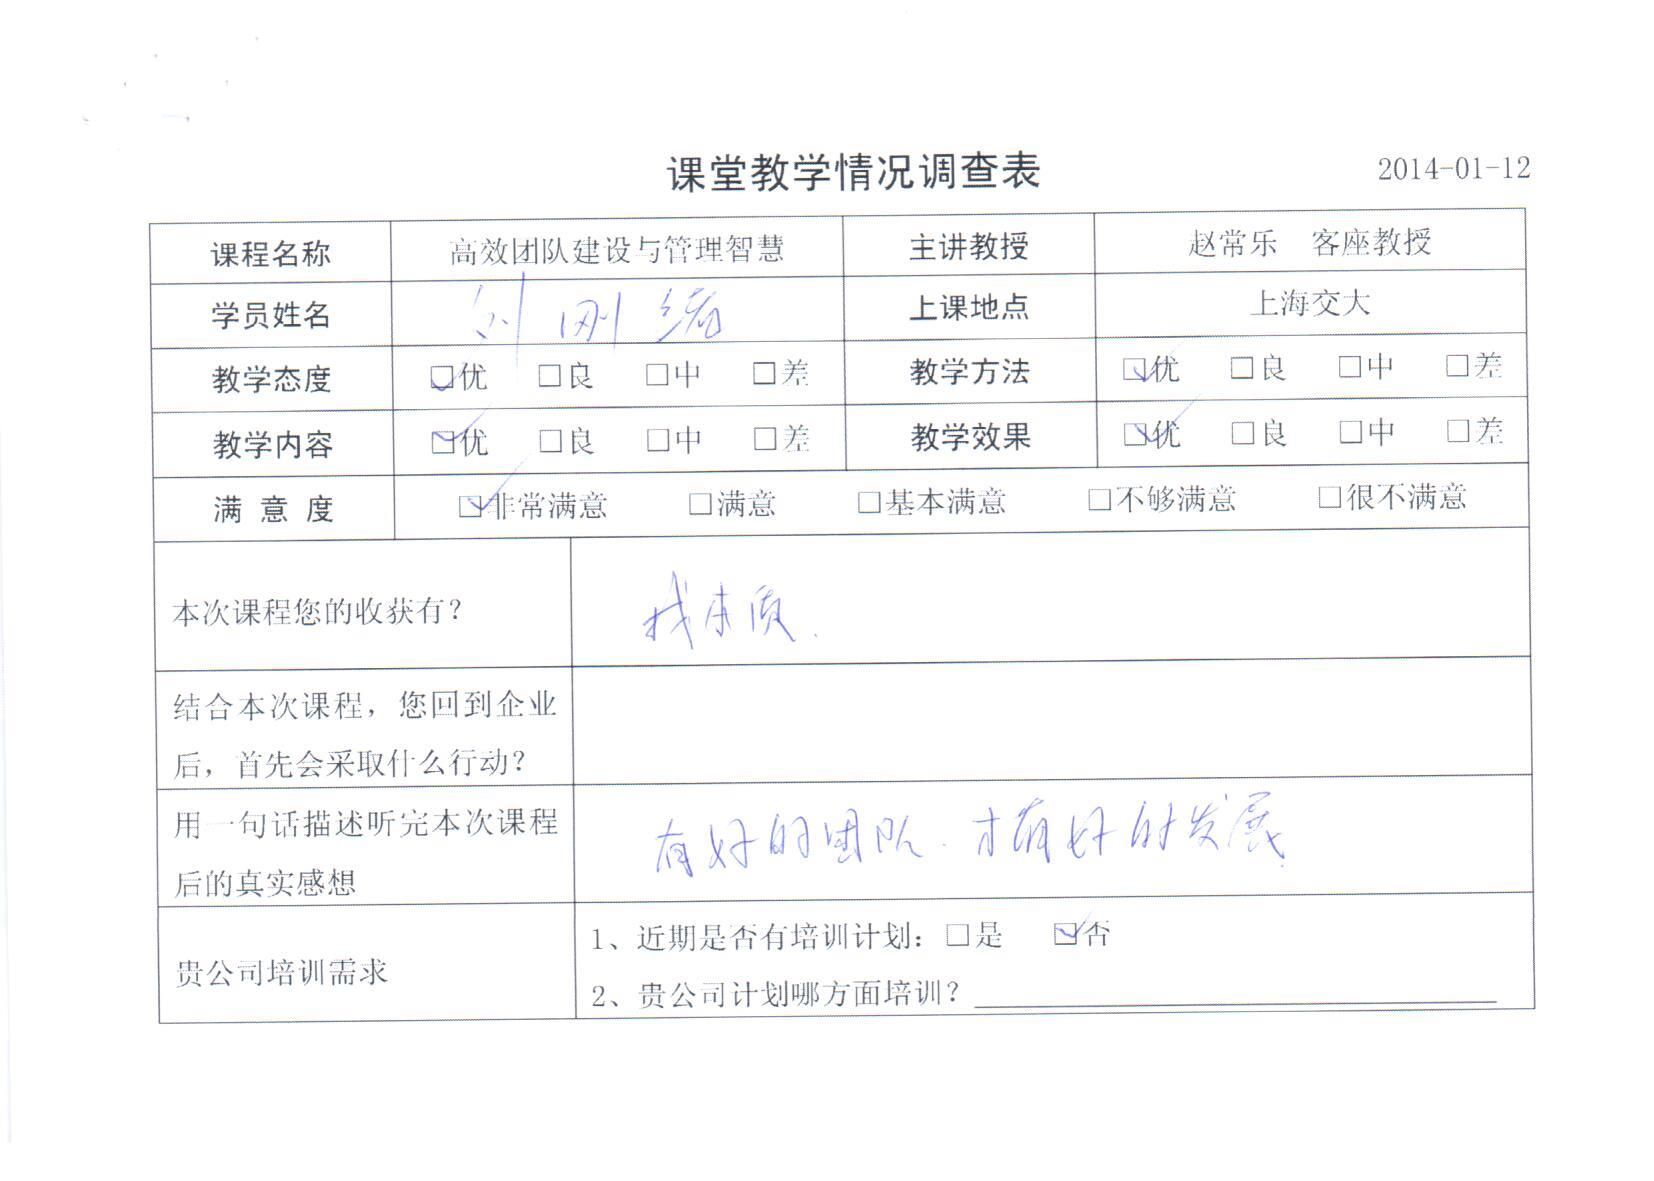 课堂教学情况调查表 2014-01-12
课程名称 高效团队建设与管理智慧 主讲教授 赵常乐 客座教授
学员姓名 刘刚 上课地点 上海交大
教学态度 ☑优 □良 □中 □差 教学方法 ☑优 □良 □中 □差
教学内容 ☑优 □良 □中 □差 教学效果 ☑优 □良 □中 □差
满意度 ☑非常满意 □满意 □基本满意 □不够满意 □很不满意
本次课程您的收获有？ 找本质.
结合本次课程，您回到企业
后，首先会采取什么行动？
用一句话描述听完本次课程
后的真实感想
有好的团队.才有好的发展
贵公司培训需求
1、近期是否有培训计划：□是 ☑否
2、贵公司计划哪方面培训？